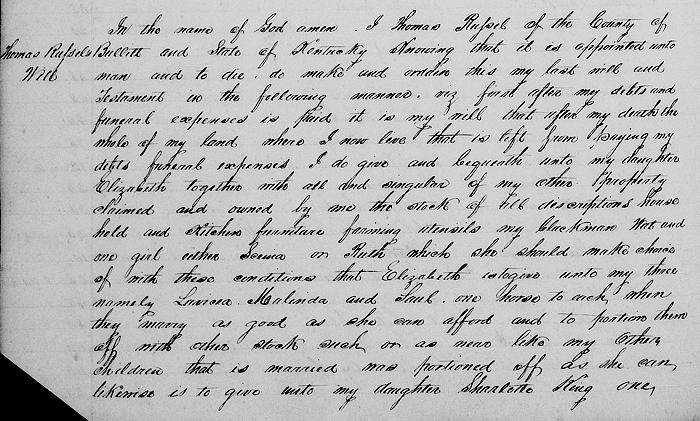 In the name of God amen. I Thomas Russel of the County of
Thomas Russels Bullett and State of Kentucky Knowing that it is appointed unto
Will man and to die. do make and ordain this my last will and
Testament in the following manner. viz first after my debts and
funeral expenses is paid it is my will that after my death the
whole of my land where I now live that is left from paying my
debts funeral expenses I do give and bequeath unto my daughter
Elizabeth together with all and singular of my other property
claimed and owned by me the stock of all descriptions house
hold and Kitchen furniture farming utensils my blackman and
one girl either or Ruth which she should make choice
of with these conditions that Elizabeth is to give unto my three
namely Malinda and one horse to each, when
they marry as good as she can afford and to portion them
off with other stock such or as near like my other
children that is married was portioned off as she can,
likewise is to give unto my daughter Sharlotte King one,